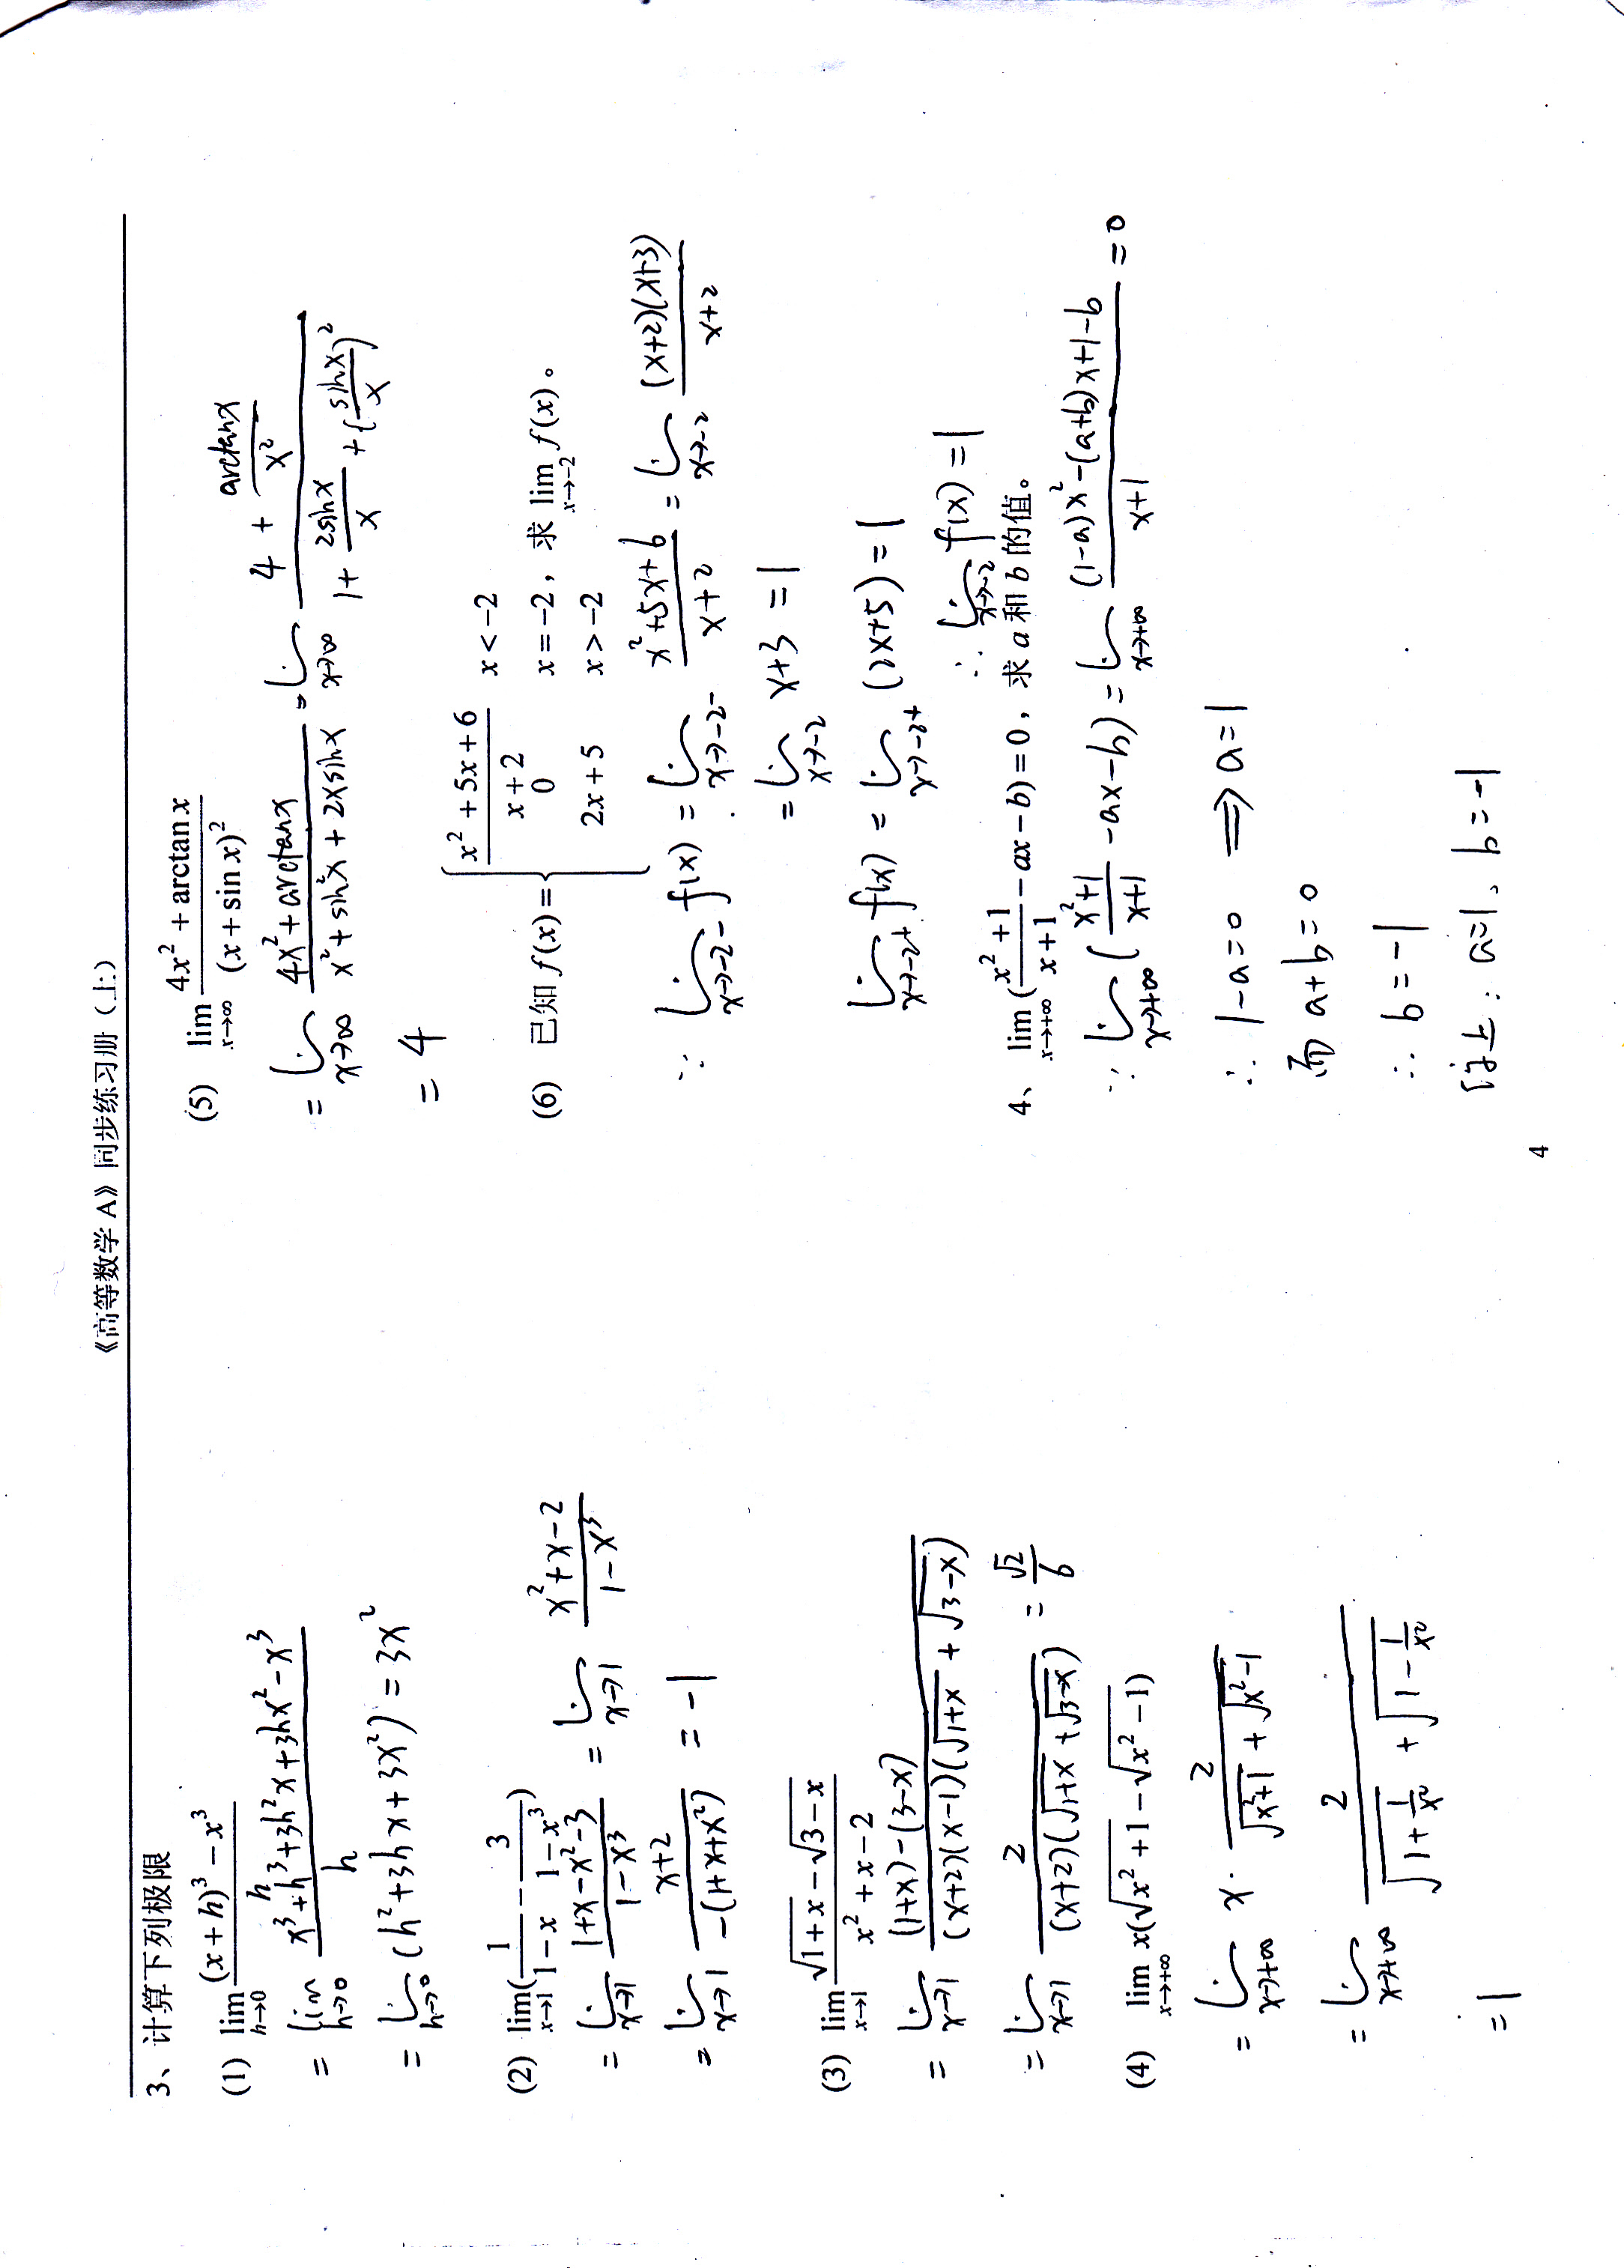 《高等数学 A》同步练习册（上）
3、计算下列极限
(1) lim_{h→0} ((x+h)³−x³)/h
= lim_{h→0} (x³+h³+3h²x+3hx²−x³)/h
= lim_{h→0} (h²+3hx+3x²) = 3x²
(2) lim_{x→1} (1/(1−x) − 3/(1−x³))
= lim_{x→1} (1+x−x²−3)/(1−x³) = lim_{x→1} (x²+x−2)/(1−x³)
= lim_{x→1} (x+2)/(−(1+x+x²)) = −1
(3) lim_{x→1} (√(1+x)−√(3−x))/(x²+x−2)
= lim_{x→1} ((1+x)−(3−x))/((x+2)(x−1)(√(1+x)+√(3−x)))
= lim_{x→1} 2/((x+2)(√(1+x)+√(3−x))) = √2/6
(4) lim_{x→+∞} x(√(x²+1)−√(x²−1))
= lim_{x→+∞} x· 2/(√(x²+1)+√(x²−1))
= lim_{x→+∞} 2/(√(1+1/x²)+√(1−1/x²))
= 1
(5) lim_{x→∞} (4x²+arctan x)/(x+sin x)²
= lim_{x→∞} (4x²+arctanx)/(x²+sin²x+2xsinx) = lim_{x→∞} (4+arctanx/x²)/(1+2sinx/x+(sinx/x)²)
= 4
(6) 已知 f(x) = { (x²+5x+6)/(x+2) x<−2
0 x=−2，求 lim_{x→−2} f(x)。
2x+5 x>−2
∵ lim_{x→−2−} f(x) = lim_{x→−2−} (x²+5x+6)/(x+2) = lim_{x→−2} (x+2)(x+3)/(x+2)
= lim_{x→−2} x+3 = 1
lim_{x→−2+} f(x) = lim_{x→−2+} (2x+5) = 1
∴ lim_{x→−2} f(x) = 1
4、 lim_{x→+∞} ((x²+1)/(x+1) − ax − b) = 0，求 a 和 b 的值。
∵ lim_{x→+∞} ((x²+1)/(x+1) −ax−b) = lim_{x→+∞} ((1−a)x²−(a+b)x+1−b)/(x+1) = 0
∴ 1−a=0 ⟹ a=1
而 a+b=0
∴ b=−1
综上：a=1、b=−1
4